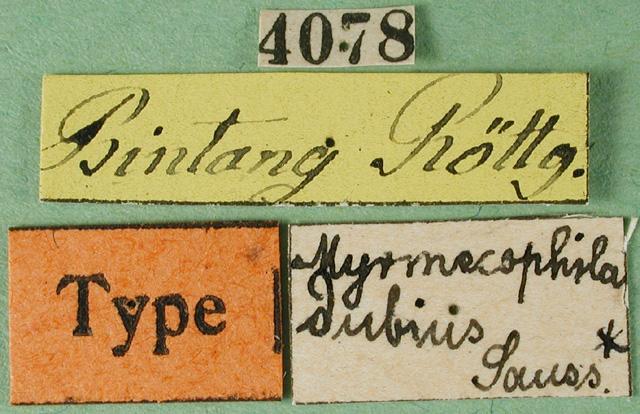 4078
Bintang Röttg.
Type
Myrmecophila
dubius
Sauss. *